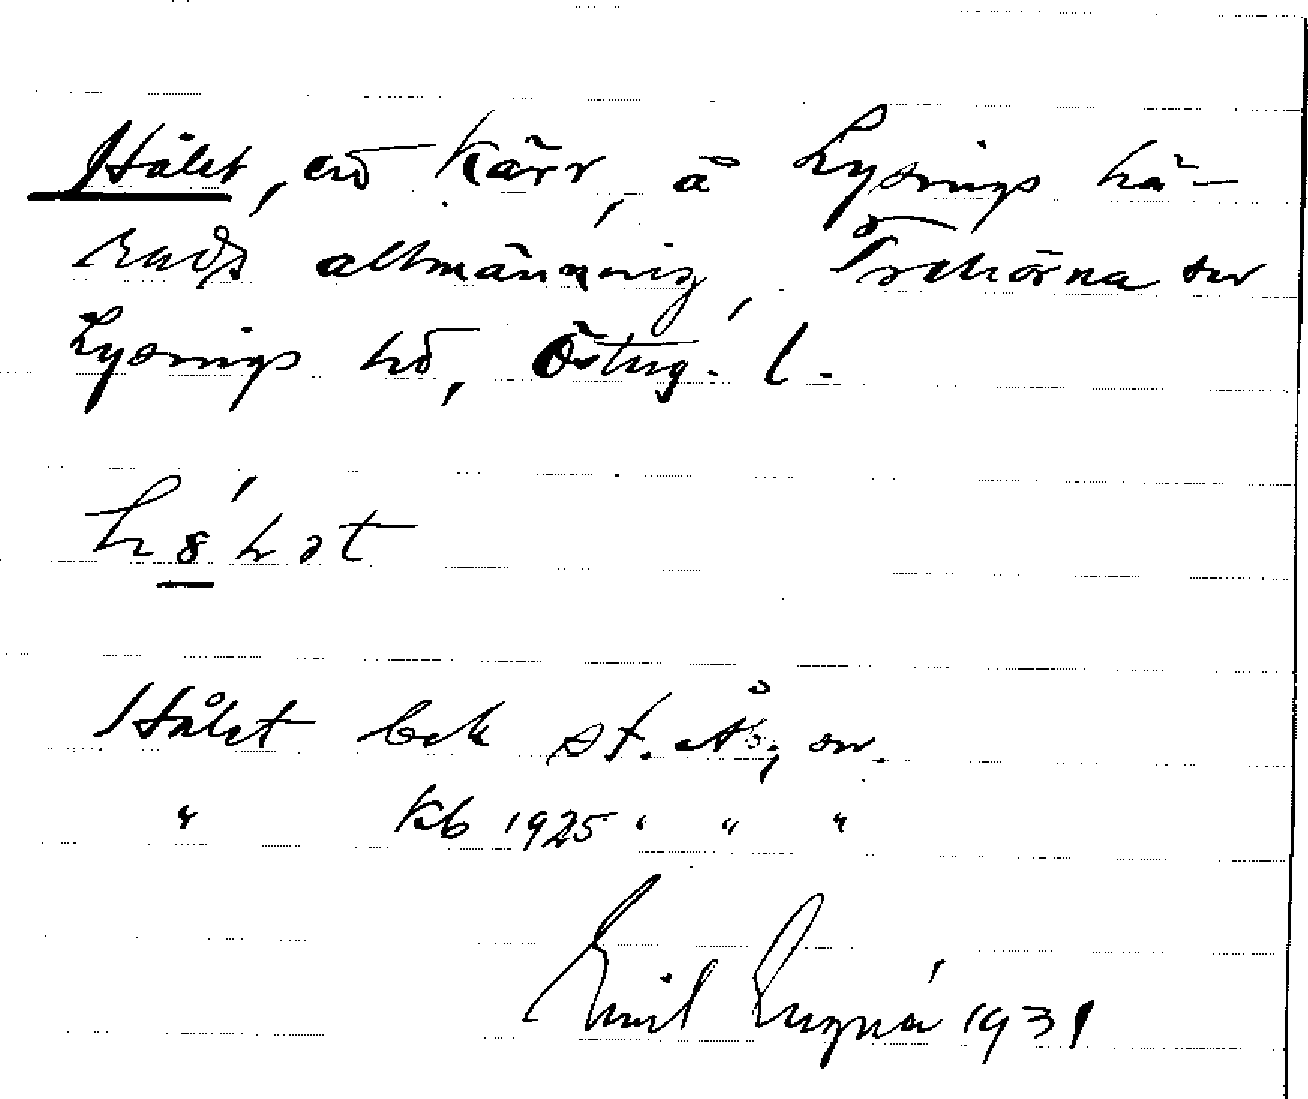 Hålet, ett kärr, å Lysings hä-
rads allmänning, Trehörna sn
Lysings hd, Österg. l.
Hålet bek st. Ås, ow.
" Kb 1925 " " "
Emil 1931